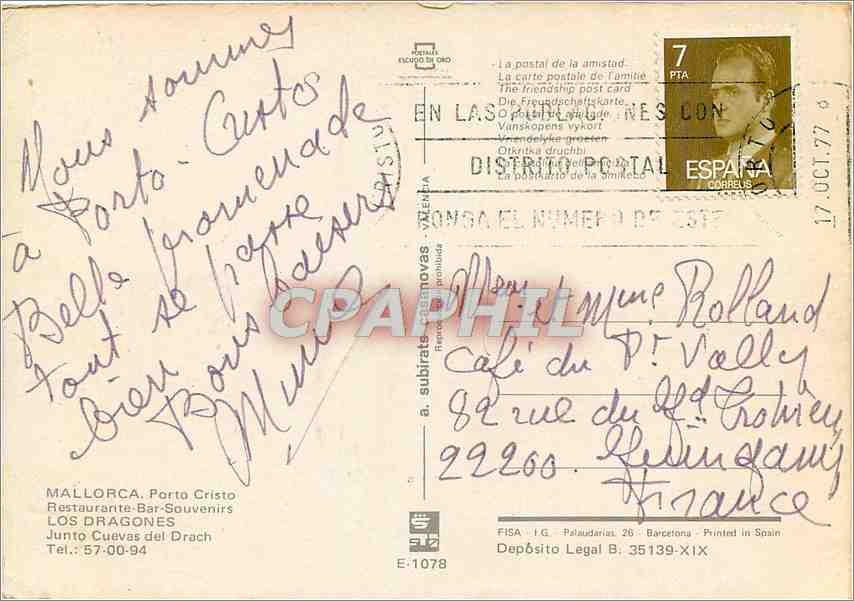 Nous sommes
à Porto-Cristo
Belle promenade
tout se passe
bien
Bons baisers
MALLORCA. Porto Cristo
Restaurante-Bar-Souvenirs
LOS DRAGONES
Junto Cuevas del Drach
Tel.: 57-00-94
POSTALES
ESCUDO DE ORO
La postal de la amistad
La carte postale de l'amitié
The friendship post card
Die Freundschaftskarte
Vanskopens vykort
Vriendelyke groeten
Otkritka druchbi
La postkarto de la amikeco
EN LAS POBLACIONES CON
DISTRITO POSTAL
PONGA EL NUMERO DE ESTE
17.OCT.77
7
PTA
ESPAÑA
CORREUS
a. subirats casanovas - VALENCIA
Reproducción prohibida
CPAPHIL
et Mme Rolland
café du Pt Vally
82 rue du
22200 Guingamp
France
E-1078
FISA - I.G. - Palaudarias, 26 - Barcelona - Printed in Spain
Depósito Legal B. 35139-XIX